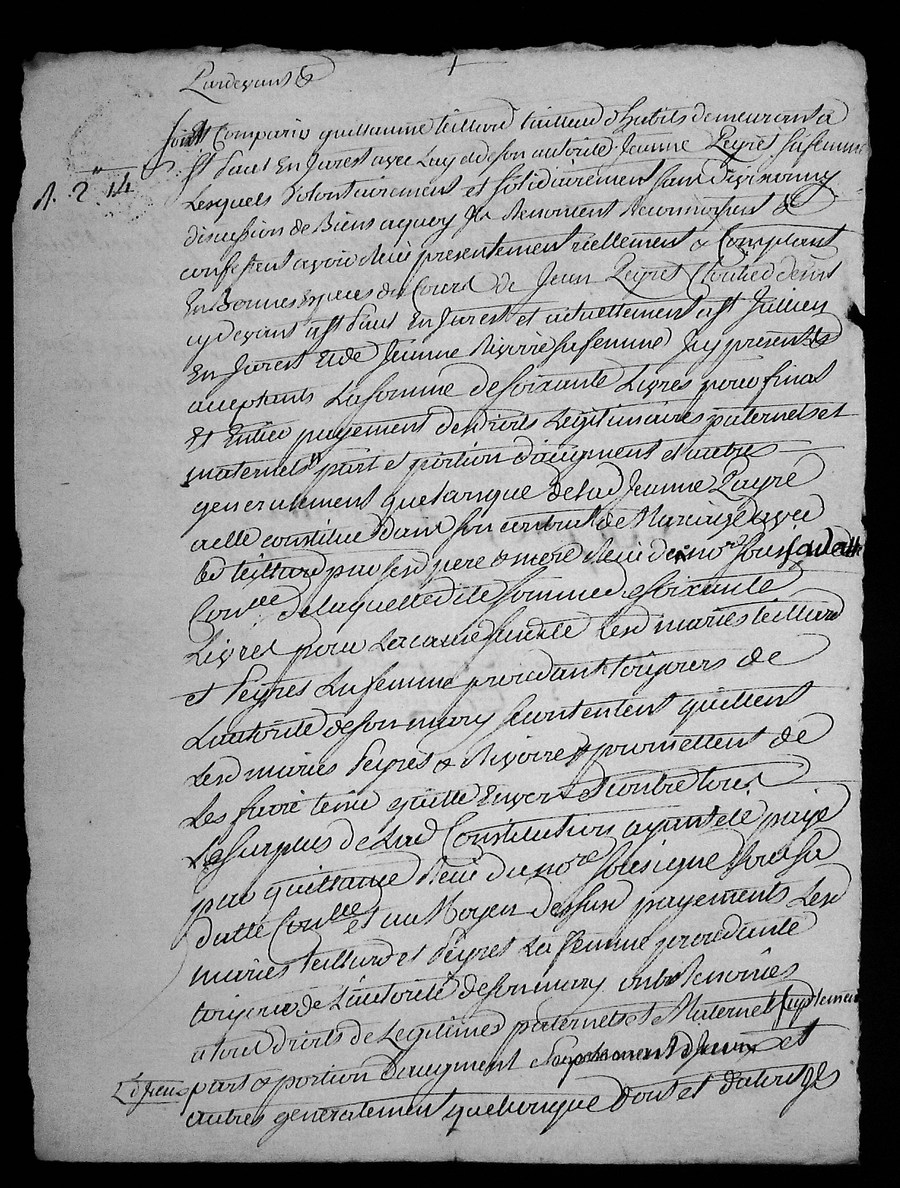 Pardevant &
fut Comparu guillaume teillard tailleur d'habits demeurant a
st paul En Jarest avec luy et de son autorité Jeanne Peyret sa femme
A. 2 14
Lesquels volontairement et solidairement sans division ny
discution de Biens aquoy ils Renoncent Reconnoissent &
confessent avoir Receu présentement reellement & Comptant
En Bonnes Especes du Cours de Jean Peyret Cloutier demt
cy devant a st paul En Jarest et actuellement a st Jullien
En Jarest Et de Jeanne Rivoire sa femme Icy presents
acceptants La somme de soixante Livres pour final
Et Entier payement des droits Legitimaires paternels et
maternels part et portion d'augment et autres
generalement quelconque de lad Jeanne Payré
a elle constitués dans son contrat de Mariage avec
led teillard par ses pere & mere Receu du nore sousé
Conllé de laquelle dite somme de soixante
Livres pour La cause susdite Lesd mariés teillard
et Peyret sa femme procedant toujours de
L'autorité de son mary se contentent quittent
Lesd mariés Peyret & Rivoire & promettent de
Les faire tenir quitte Envers et contre tous
Le surplus de lad Constitution ayant eté payé
par quittance Receue du nore sousigné sous sa
datte Conllé et au Moyen dessus payements Lesd
mariés teillard et Peyret sa femme procedante
toujours de L'autorité de son mary ont Renoncés
a tous droits de Legitimes paternels et Maternel suplement
Ld Jeune part & portion d'augment et
autres generalement quelconque dont et